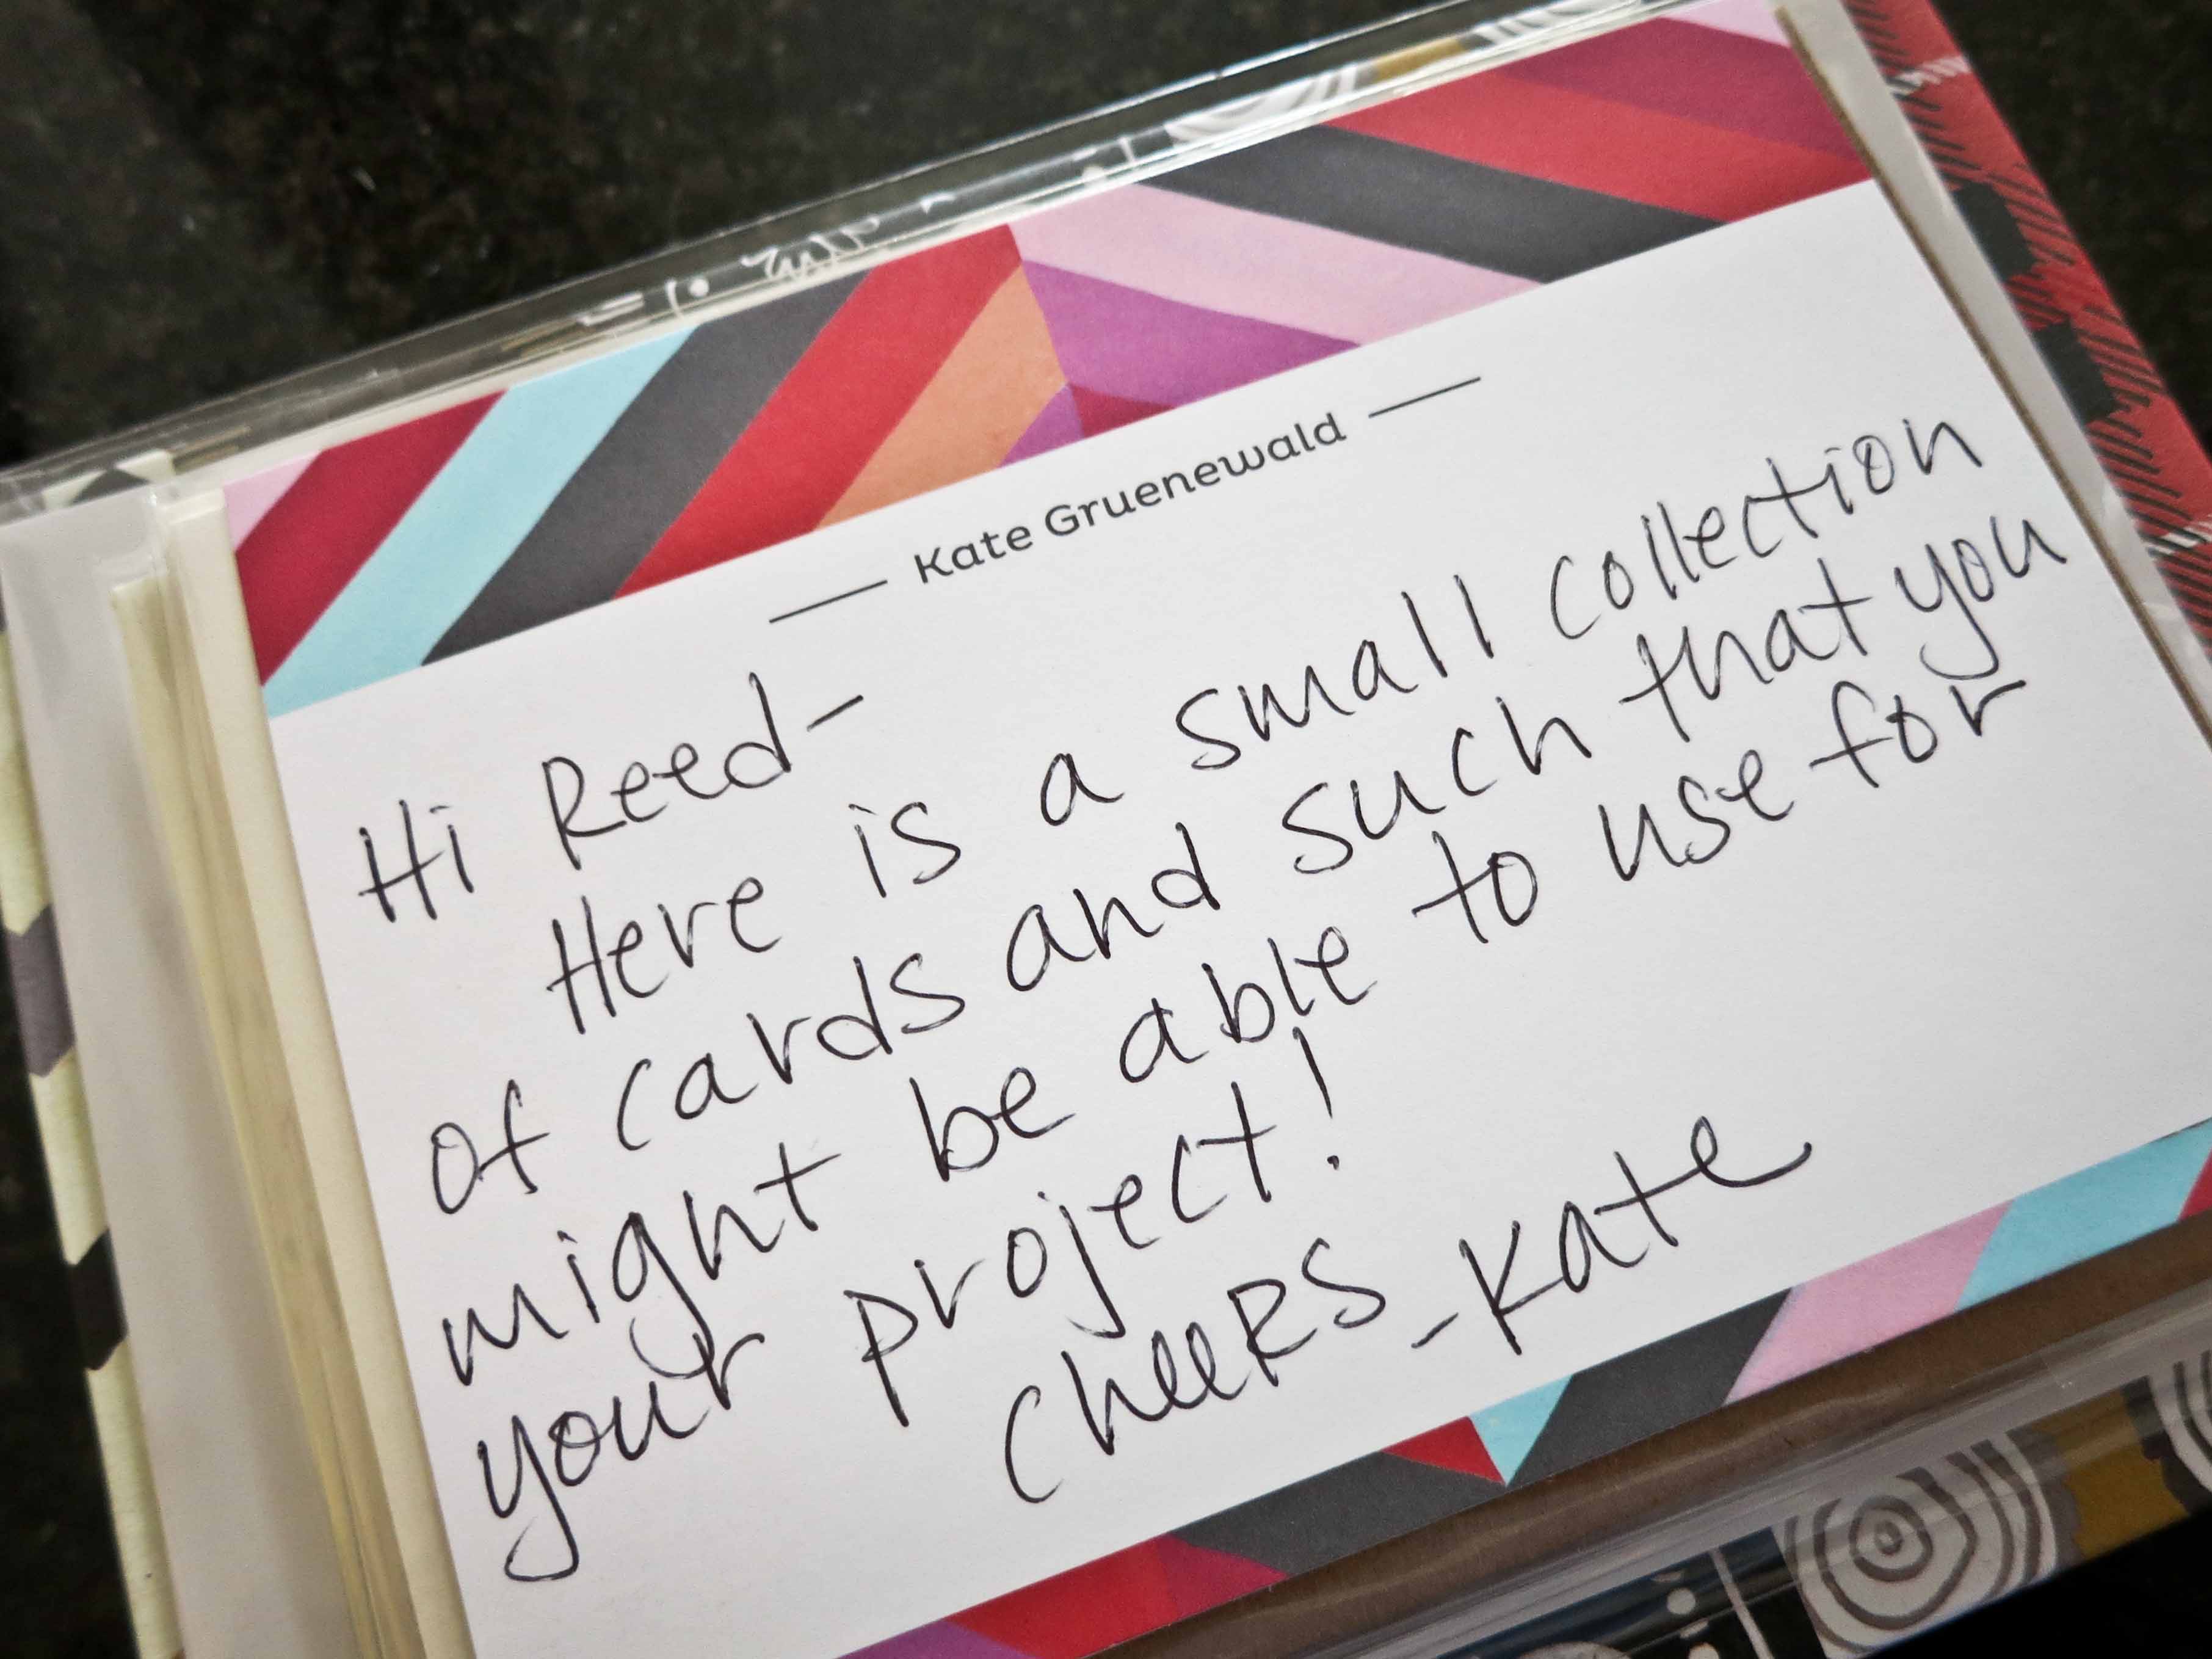 Kate Gruenewald
Hi Reed-
Here is a small collection
of cards and such that you
might be able to use for
your project!
CheeRS - Kate